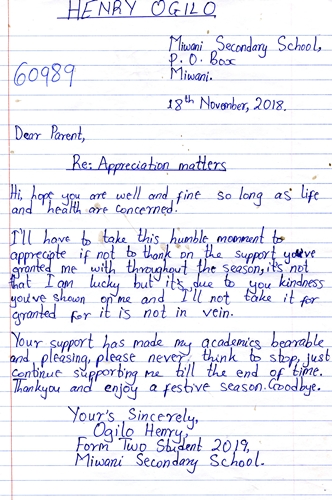 HENRY OGILO
Miwani Secondary School,
P. O. Box
60989
Miwani.
18th November, 2018.
Dear Parent,
Re: Appreciation matters
Hi, hope you are well and fine so long as life
and health are concerned.
I'll have to take this humble moment to
appreciate if not to thank on the support you've
granted me with throughout the season, it's not
that I am lucky but it's due to you kindness
you've shown on me and I'll not take it for
granted for it is not in vein.
Your support has made my academics bearable
and pleasing, please never think to stop, just
continue supporting me till the end of time.
Thankyou and enjoy a festive season. Goodbye.
Your's Sincerely,
Ogilo Henry,
Form Two Student 2019,
Miwani Secondary School.